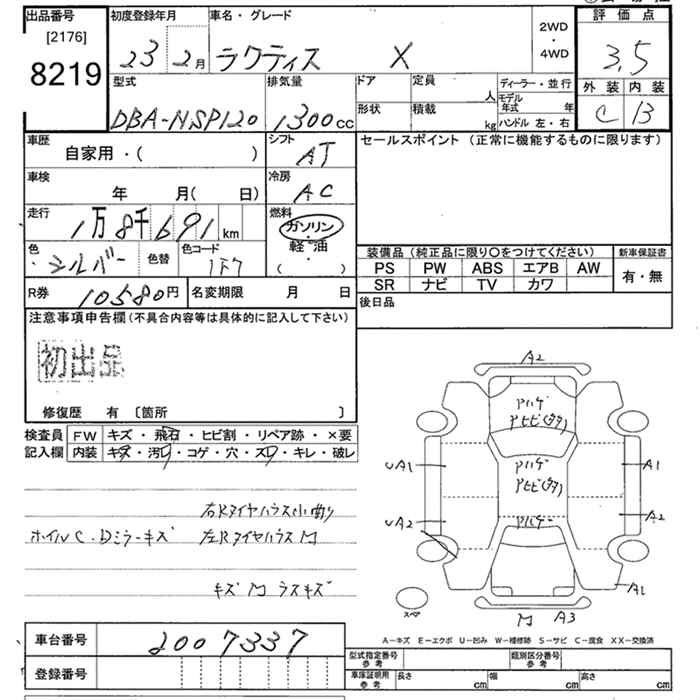 出品番号 初度登録年月 車名・グレード 2WD・4WD 評価点
[2176]
8219 23 2月 ラクティス X 3.5
型式 排気量 ドア 定員 人 ディーラー・並行 外装 内装
DBA-NSP120 1300cc 形状 積載 kg モデル年式 年 C B
ハンドル 左・右
車歴 シフト セールスポイント (正常に機能するものに限ります)
自家用・( ) AT
車検 冷房
年 月( 日) AC
走行 燃料
1万8千691km ガソリン・軽油
色 色替 色コード ( )
シルバー 1F7
装備品 (純正品に限り○をつけてください) 新車保証書
PS PW ABS エアB AW 有・無
SR ナビ TV カワ
R券 10580円 名変期限 月 日 後日品
注意事項申告欄(不具合内容等は具体的に記入して下さい)
初出品
修復歴 有 〔箇所 〕
検査員 FW キズ・飛石・ヒビ割・リペア跡・×要
記入欄 内装 キズ・汚レ・コゲ・穴・スレ・キレ・破レ
右Rタイヤハウス小曲り
ホイルC・Dミラーキズ 左RタイヤハウスM
キズM ラスキズ
A2
アハゲ
アヒビ(タタ)
アハゲ
アヒビ(タタ)
UA1 A1
UA2 アハゲ A2
A1
スペア M A3
A-キズ E-エクボ U-凹み W-補修跡 S-サビ C-腐食 XX-交換済
車台番号 2007337
登録番号
型式指定番号 参考 類別区分番号 参考
車庫証明用 参考 長さ cm 幅 cm 高さ cm